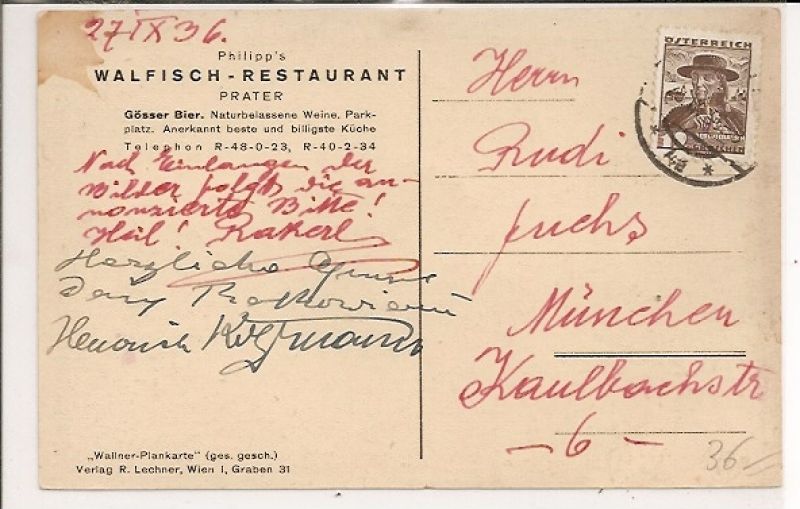 27 IX 36.
Philipp's
WALFISCH-RESTAURANT
PRATER
Gösser Bier. Naturbelassene Weine. Park-
platz. Anerkannt beste und billigste Küche
Telephon R-48-0-23, R-40-2-34
Nach Einlangen der
Bilder folgt die an-
nonzierte Bitte!
Heil! Rakerl
Herzliche Grüsse
Heinrich
„Wallner-Plankarte" (ges. gesch.)
Verlag R. Lechner, Wien I, Graben 31
ÖSTERREICH
GROSCHEN
Herrn
Rudi
Fuchs
München
Kaulbachstr.
- 6 -
36